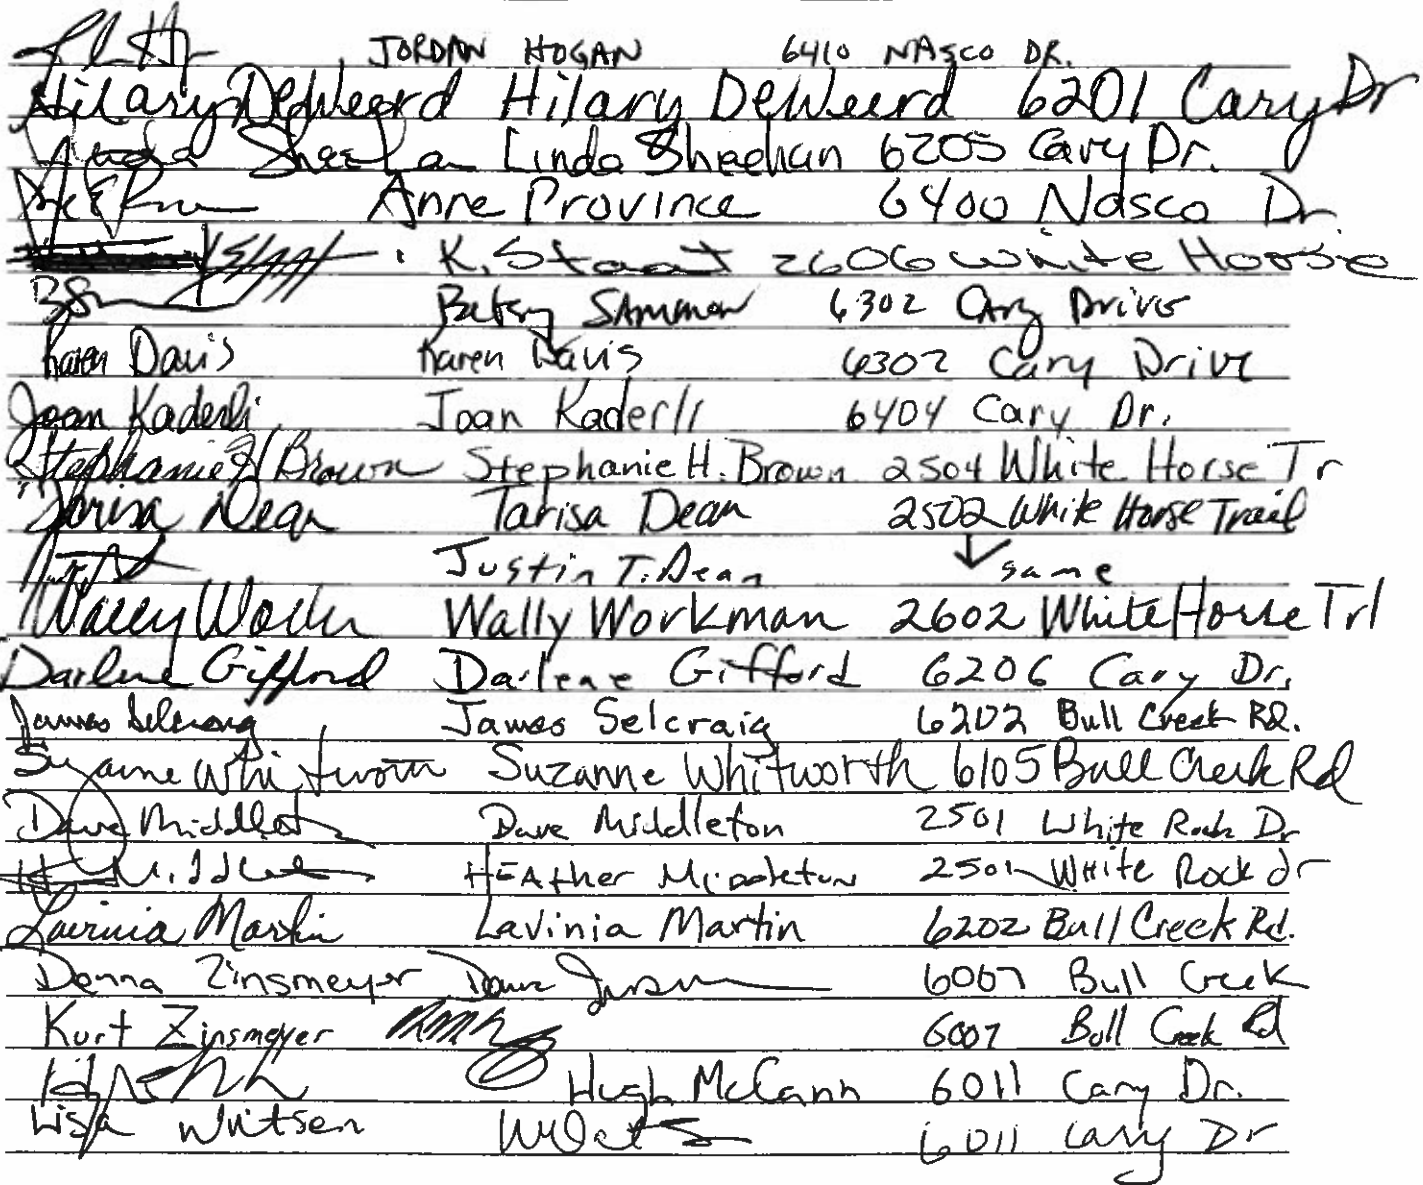 JORDAN HOGAN 6410 NASCO DR.
Hilary DeWeerd Hilary DeWeerd 6201 Cary Dr
Linda Sheehan Linda Sheehan 6205 Cary Dr.
Anne Province 6400 Nasco Dr
K. Staat 2606 White Horse
Betsy SAMMON 6302 Cary Drive
Karen Davis Karen Davis 6302 Cary Drive
Joan Kaderli Joan Kaderli 6404 Cary Dr.
Stephanie H Brown Stephanie H. Brown 2504 White Horse Tr
Tarisa Dean Tarisa Dean 2502 White Horse Trail
Justin T. Dean ↓ same
Wally Workman 2602 White Horse Trl
Darlene Gifford Darlene Gifford 6206 Cary Dr.
James Selcraig James Selcraig 6202 Bull Creek RD.
Suzanne Whitworth Suzanne Whitworth 6105 Bull Creek Rd
Dave Middleton Dave Middleton 2501 White Rock Dr
HEATher Middleton 2501 White Rock dr
Lavinia Martin Lavinia Martin 6202 Bull Creek Rd.
Donna Zinsmeyer 6007 Bull Creek
Kurt Zinsmeyer 6007 Bull Creek Rd
Hugh McCann 6011 Cary Dr.
Lisa Witsen 6011 Cary Dr